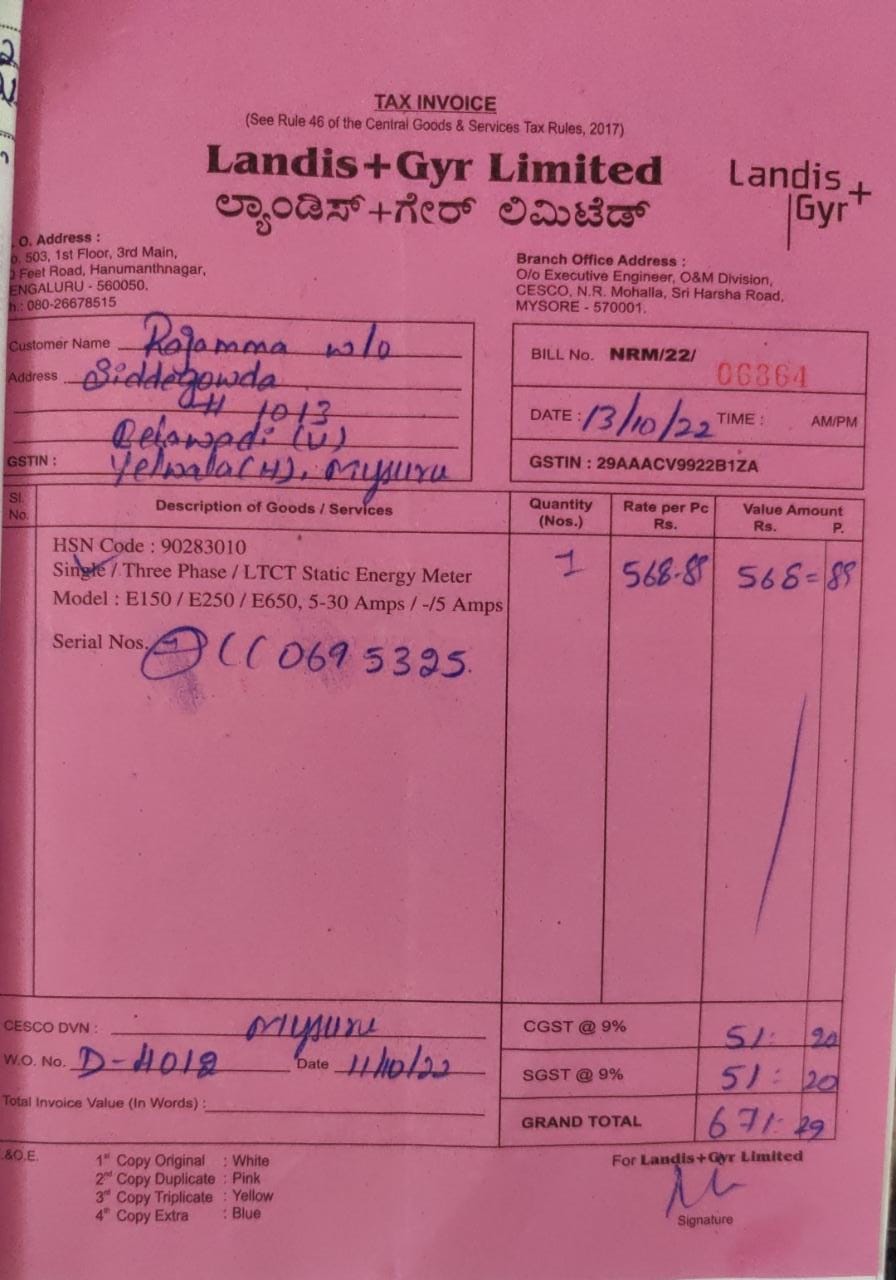 TAX INVOICE
(See Rule 46 of the Central Goods & Services Tax Rules, 2017)
Landis+Gyr Limited
ಲ್ಯಾಂಡಿಸ್+ಗೇರ್ ಲಿಮಿಟೆಡ್
Landis+
Gyr
O. Address :
503, 1st Floor, 3rd Main,
Feet Road, Hanumanthnagar,
ENGALURU - 560050.
h.: 080-26678515
Branch Office Address :
O/o Executive Engineer, O&M Division,
CESCO, N.R. Mohalla, Sri Harsha Road,
MYSORE - 570001.
Customer Name Rajamma w/o
Address Siddegowda
1013
Belawadi (V)
GSTIN : Yelwala (H), Mysuru
BILL No. NRM/22/ 06864
DATE : 13/10/22 TIME : AM/PM
GSTIN : 29AAACV9922B1ZA
Sl. No. Description of Goods / Services Quantity (Nos.) Rate per Pc Rs. Value Amount Rs. P.
HSN Code : 90283010
Single / Three Phase / LTCT Static Energy Meter 1 568-89 568=89
Model : E150 / E250 / E650, 5-30 Amps / -/5 Amps
Serial Nos. 0695325.
CESCO DVN : Mysuru
W.O. No. D-4018 Date 11/10/22
Total Invoice Value (In Words) :
CGST @ 9% 51: 20
SGST @ 9% 51: 20
GRAND TOTAL 671: 29
.&O.E.
1st Copy Original : White
2nd Copy Duplicate : Pink
3rd Copy Triplicate : Yellow
4th Copy Extra : Blue
For Landis+Gyr Limited
Signature